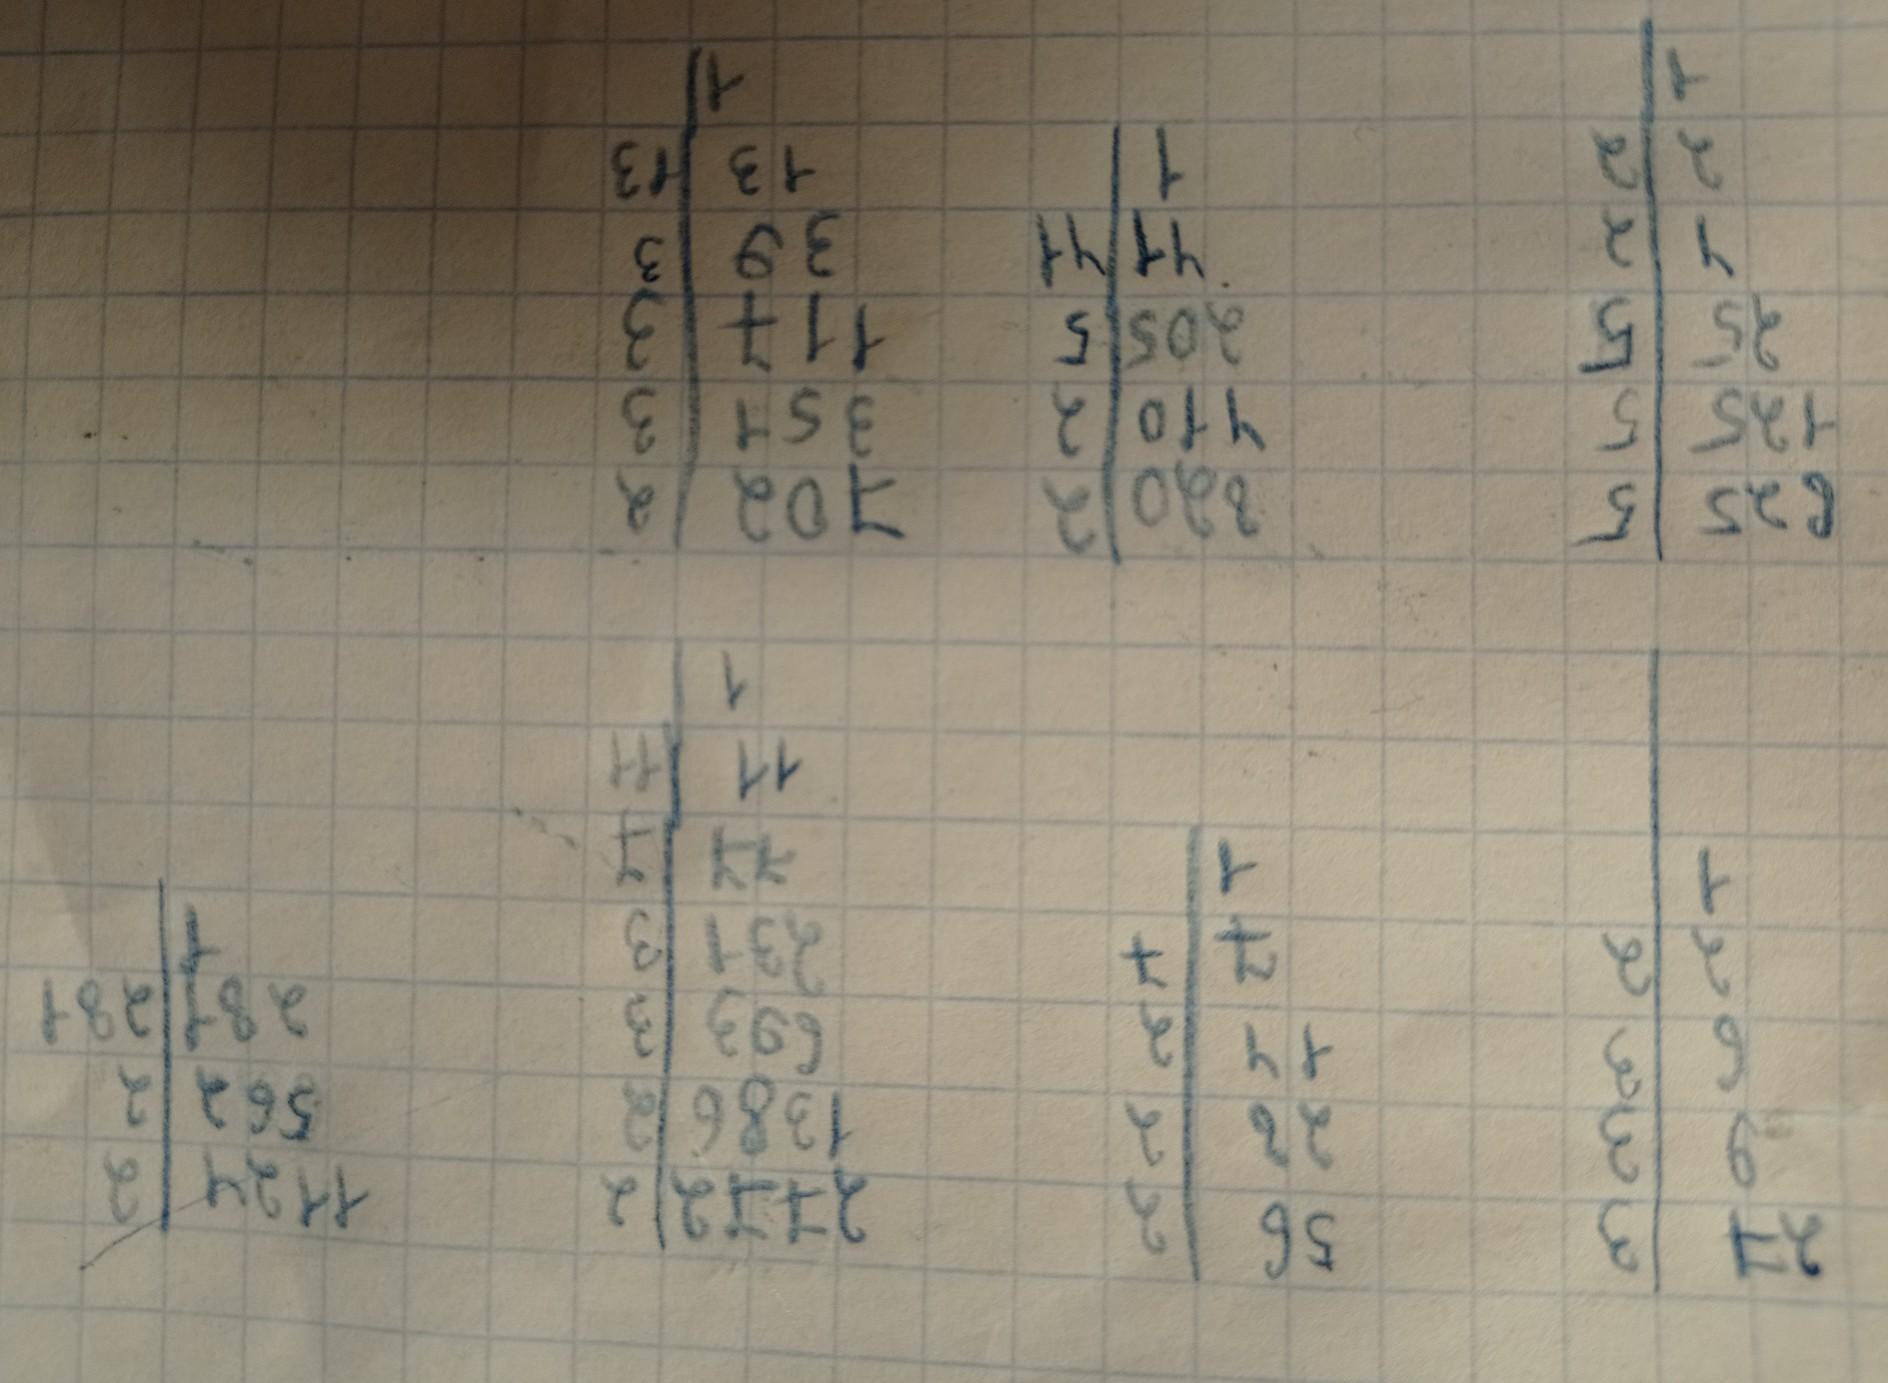 27 | 3
9 | 3
6 | 3
2 | 2
1 |
56 | 2
28 | 2
14 | 2
7 | 7
1 |
2772 | 2
1386 | 2
693 | 3
231 | 3
77 | 7
11 | 11
1 |
1124 | 2
562 | 2
281 | 281
1 |
625 | 5
125 | 5
25 | 5
4 | 2
2 | 2
1 |
820 | 2
410 | 2
205 | 5
41 | 41
1 |
702 | 2
351 | 3
117 | 3
39 | 3
13 | 13
1 |